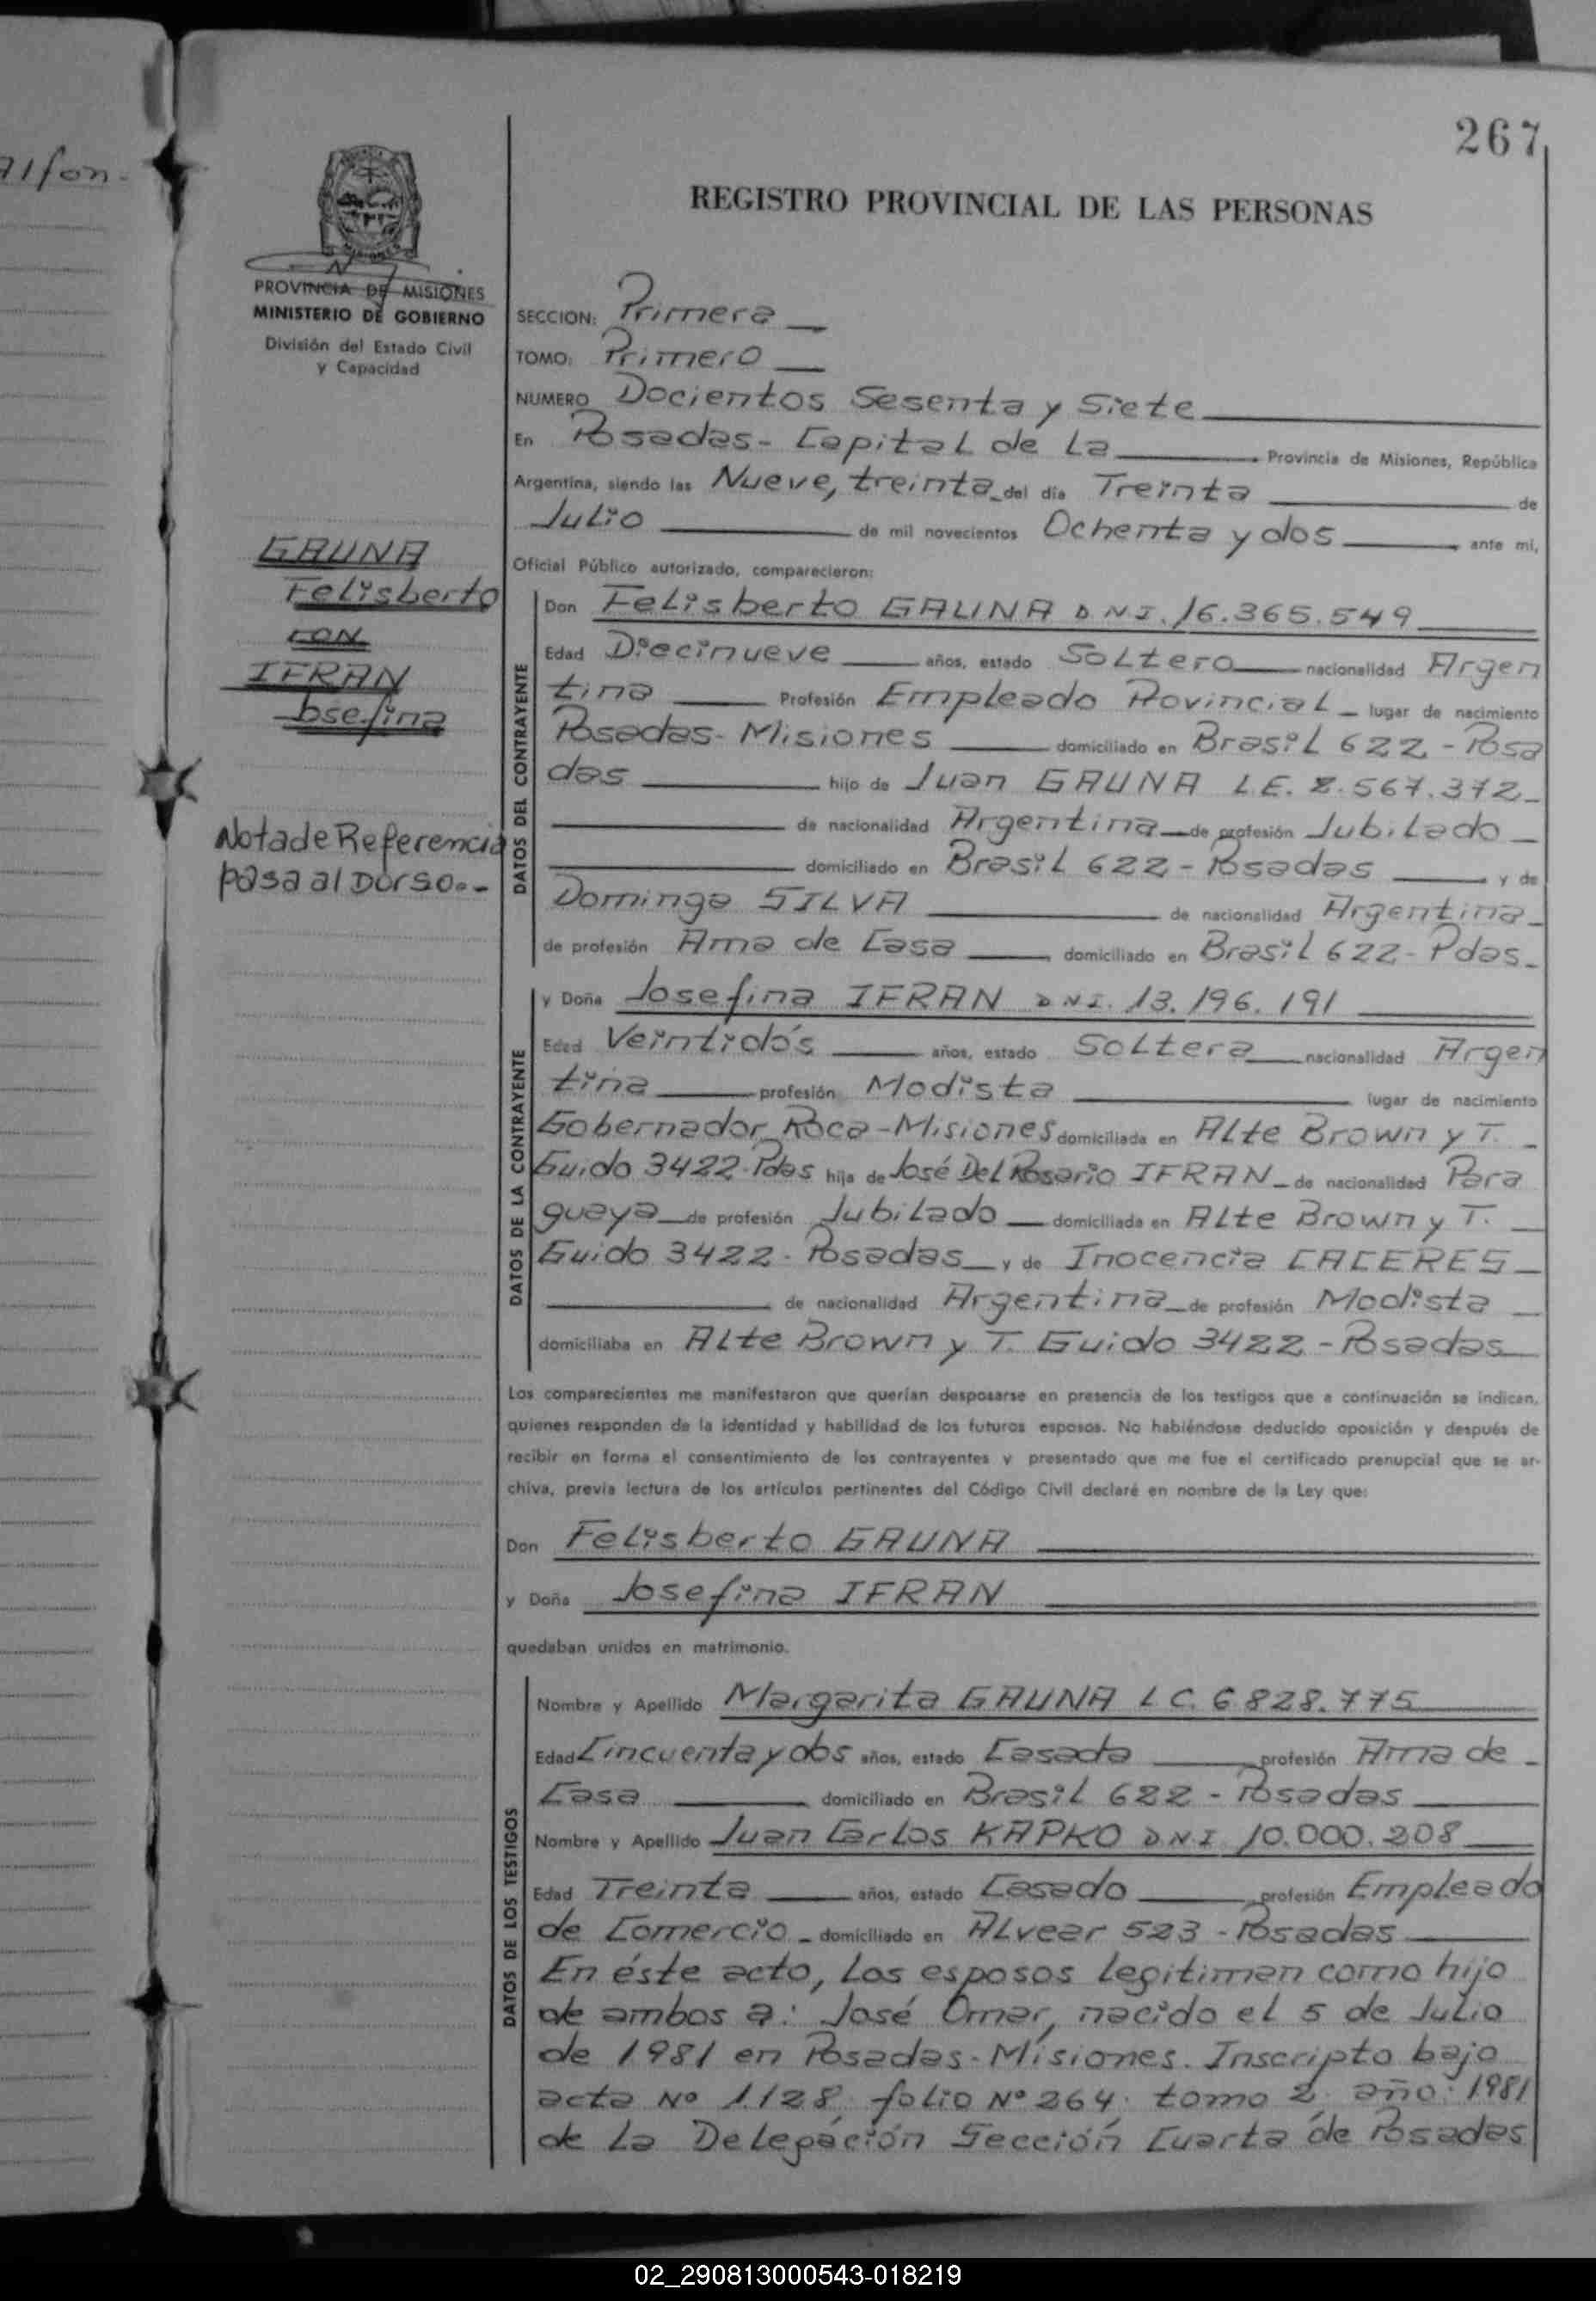 267
Alfon-
REGISTRO PROVINCIAL DE LAS PERSONAS
PROVINCIA DE MISIONES
MINISTERIO DE GOBIERNO
División del Estado Civil
y Capacidad
SECCION: Primera
TOMO: Primero
NUMERO Docientos Sesenta y Siete
En Posadas - Capital de La Provincia de Misiones, República
Argentina, siendo las Nueve, treinta del día Treinta de
Julio de mil novecientos Ochenta y dos ante mi,
Oficial Público autorizado, comparecieron:
GAUNA
Felisberto
CON
IFRAN
Josefina
Nota de Referencia
pasa al Dorso.-
DATOS DEL CONTRAYENTE
Don Felisberto GAUNA D.N.I. 16.365.549
Edad Diecinueve años, estado Soltero nacionalidad Argen
tina Profesión Empleado Provincial lugar de nacimiento
Posadas - Misiones domiciliado en Brasil 622 - Posa
das hijo de Juan GAUNA L.E. 2.567.372
de nacionalidad Argentina de profesión Jubilado
domiciliado en Brasil 622 - Posadas y de
Dominga SILVA de nacionalidad Argentina
de profesión Ama de Casa domiciliado en Brasil 622 - Pdas.
DATOS DE LA CONTRAYENTE
y Doña Josefina IFRAN D.N.I. 13.196.191
Edad Veintidós años, estado Soltera nacionalidad Argen
tina profesión Modista lugar de nacimiento
Gobernador Roca - Misiones domiciliada en Alte Brown y T.
Guido 3422 - Pdas hija de José Del Rosario IFRAN de nacionalidad Para
guaya de profesión Jubilado domiciliada en Alte Brown y T.
Guido 3422 - Posadas y de Inocencia CACERES
de nacionalidad Argentina de profesión Modista
domiciliaba en Alte Brown y T. Guido 3422 - Posadas
Los comparecientes me manifestaron que querían desposarse en presencia de los testigos que a continuación se indican,
quienes responden de la identidad y habilidad de los futuros esposos. No habiéndose deducido oposición y después de
recibir en forma el consentimiento de los contrayentes y presentado que me fue el certificado prenupcial que se ar-
chiva, previa lectura de los artículos pertinentes del Código Civil declaré en nombre de la Ley que:
Don Felisberto GAUNA
y Doña Josefina IFRAN
quedaban unidos en matrimonio.
DATOS DE LOS TESTIGOS
Nombre y Apellido Margarita GAUNA L.C. 6.828.775
Edad Cincuenta y dos años, estado Casada profesión Ama de
Casa domiciliado en Brasil 622 - Posadas
Nombre y Apellido Juan Carlos KAPKO D.N.I 10.000.208
Edad Treinta años, estado Casado profesión Empleado
de Comercio domiciliado en Alvear 523 - Posadas
En éste acto, los esposos legitiman como hijo
de ambos a: José Omar, nacido el 5 de Julio
de 1981 en Posadas - Misiones. Inscripto bajo
acta Nº 1.128, folio Nº 264, tomo 2, año: 1981
de la Delegación Sección Cuarta de Posadas
02_290813000543-018219